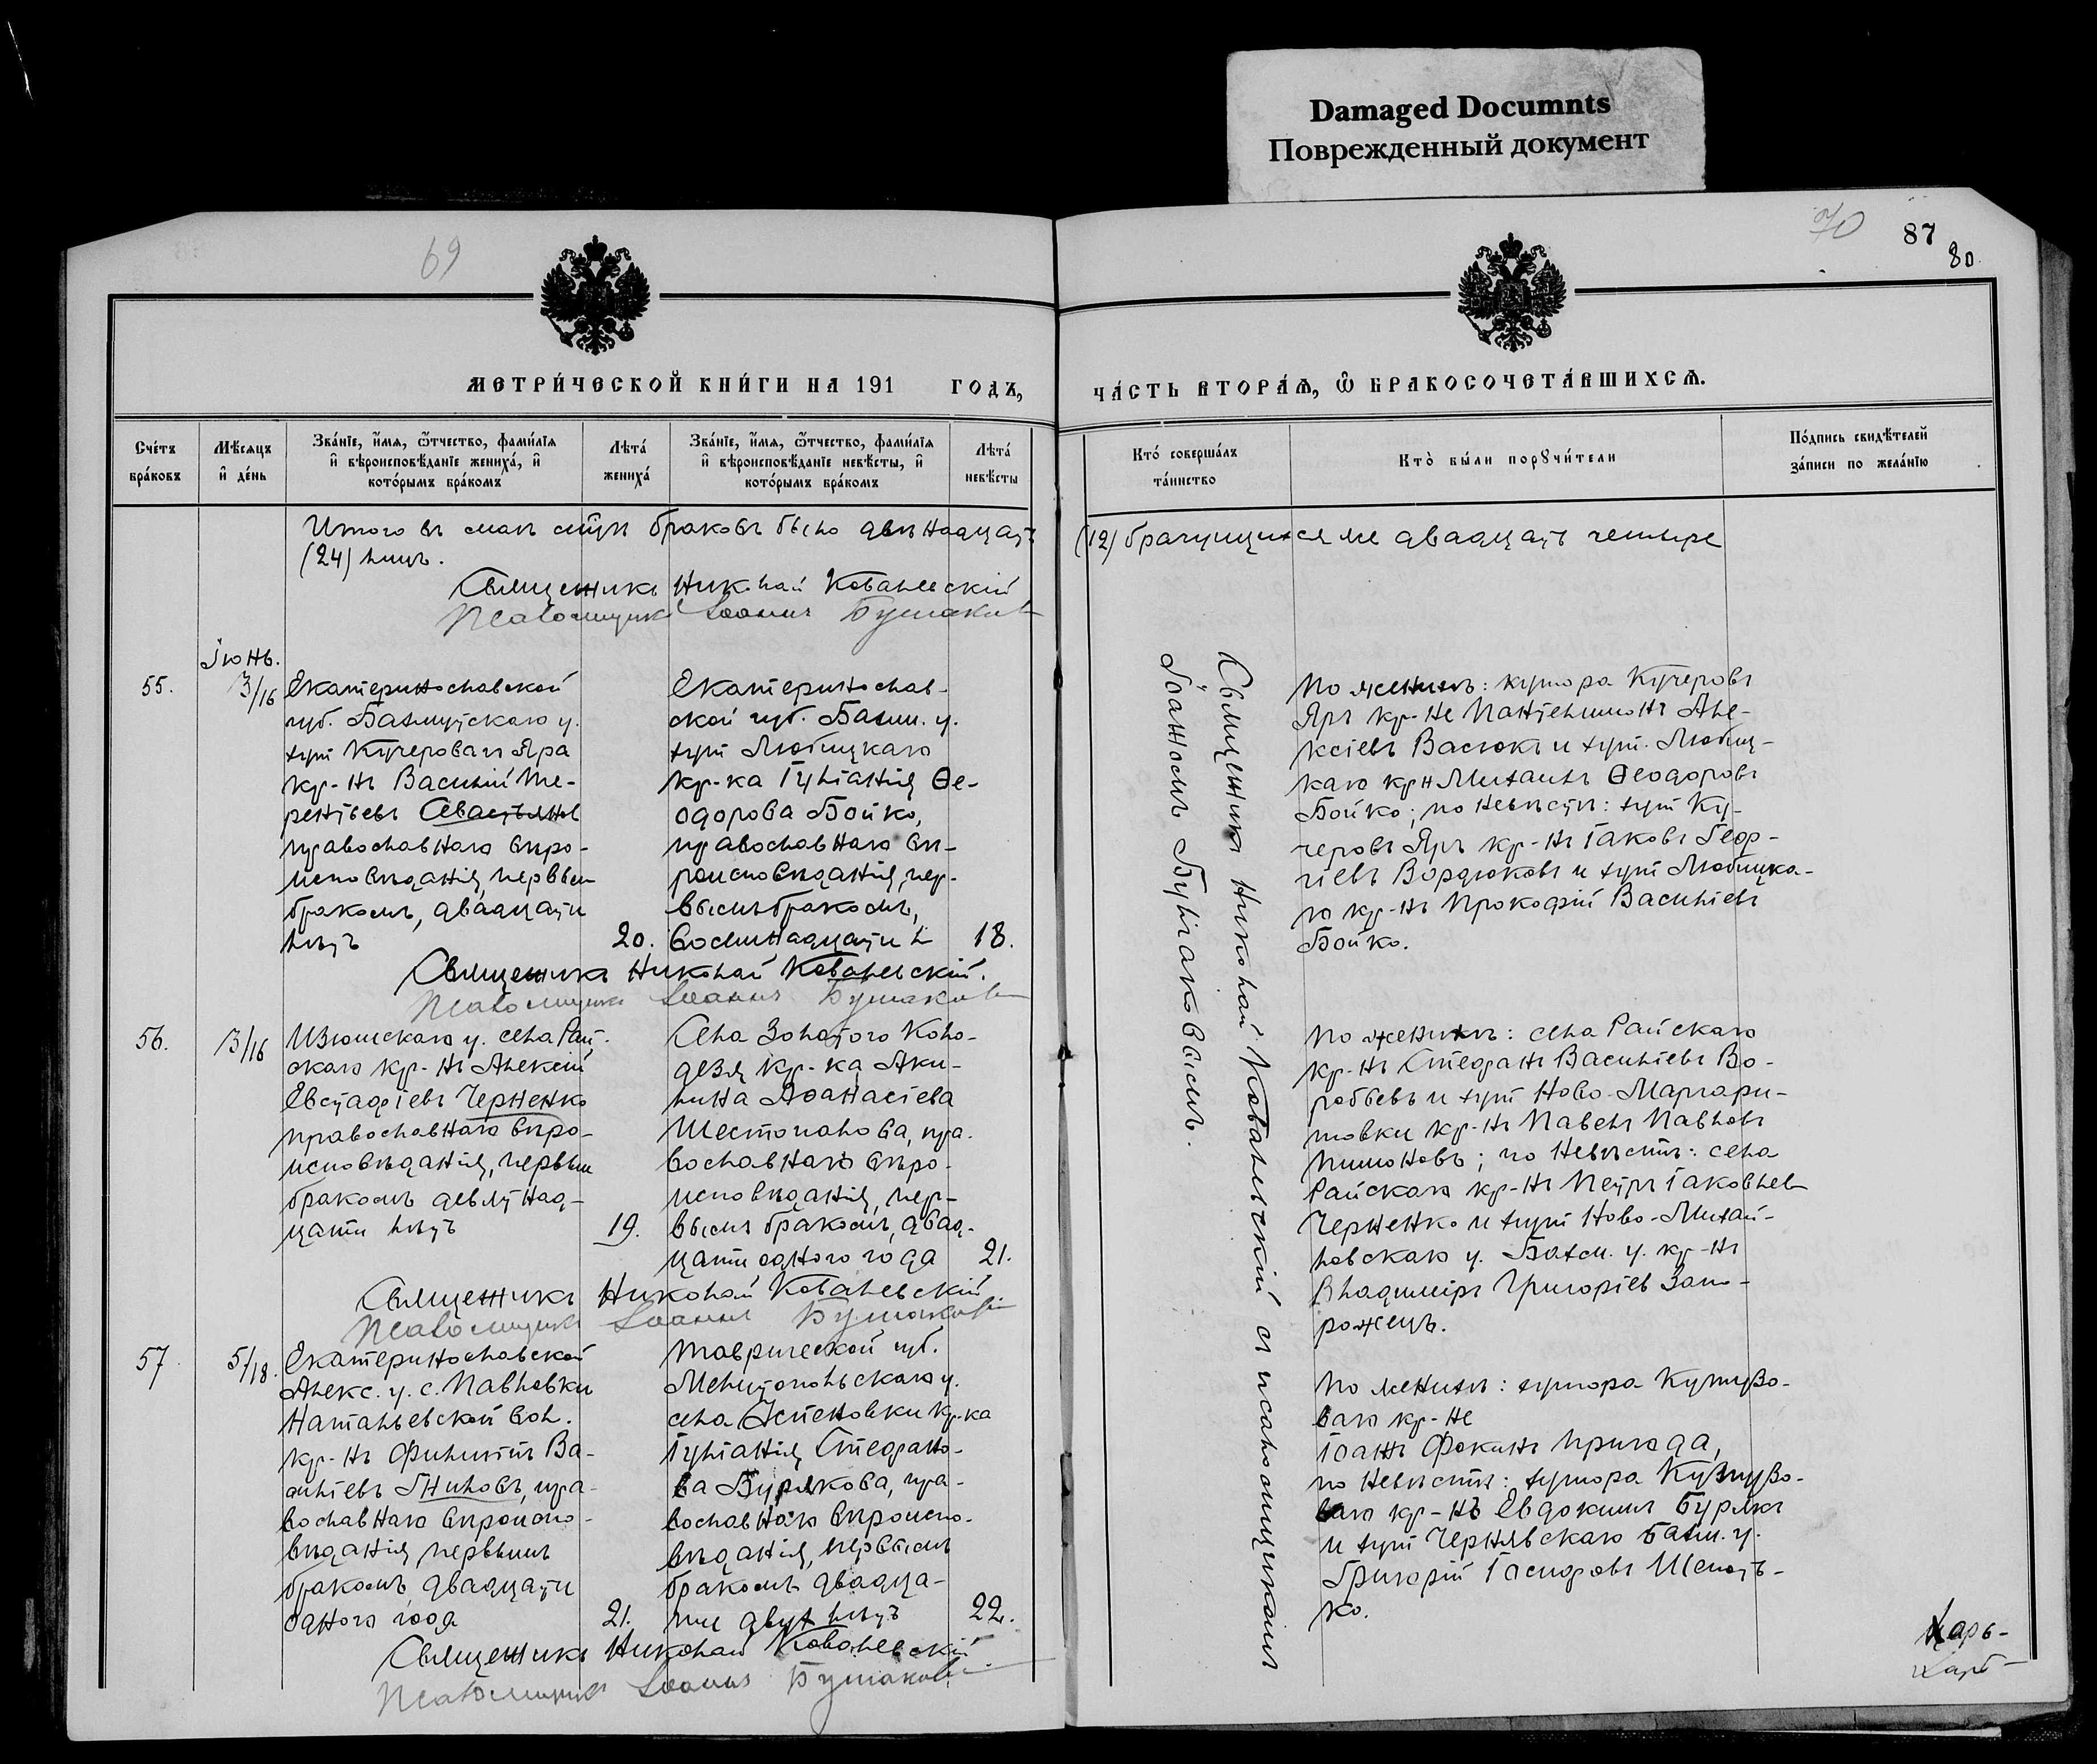 Damaged Documnts
Поврежденный документ
69
70
87
80.
МЕТРИ́ЧЕСКОЙ КНИ́ГИ НА 191 ГОДЪ,
ЧА́СТЬ ВТОРА́Ѧ, Ѽ БРАКОСОЧЕТА́ВШИХСѦ.
Сче́тъ бра́ковъ
Мѣ́сяцъ и҆ де́нь
Зва́нїе, и҆́мя, ѻ҆́тчество, фами́лїя и҆ вѣроисповѣ́данїе жениха́, и҆ кото́рымъ бра́комъ
Лѣта́ жениха́
Зва́нїе, и҆́мя, ѻ҆́тчество, фами́лїя и҆ вѣроисповѣ́данїе невѣ́сты, и҆ кото́рымъ бра́комъ
Лѣта́ невѣ́сты
Кто̀ соверша́лъ та́инство
Кто̀ бы́ли порꙋчи́тели
По́дпись свидѣ́телей за́писи по жела́нїю
Итого въ маѣ м-цѣ браковъ было двѣнадцать (12) брачущихся же двадцать четыре
(24) лицъ.
Священникъ Николай Ковалевскій
Псаломщикъ Іоаннъ Булгаковъ
Іюнь.
55.
3/16
Екатеринославской
губ. Бахмутскаго у.
хут Кучероваго Яра
кр-нъ Василій Те-
рентьевъ Севастьянов
православнаго вѣро-
исповѣданія, первым
бракомъ, двадцати
лѣтъ
20.
Екатеринослав-
ской губ. Бахм. у.
хут Любицкаго
кр-ка Іуліанія Ѳе-
одорова Бойко,
православнаго вѣ-
роисповѣданія, пер-
вымъ бракомъ,
восемнадцати л
18.
По женихѣ: хутора Кучеровъ
Яръ кр-не Пантелимонъ Але-
ксіевъ Васюкъ и хут. Любиц-
каго крн Михаилъ Ѳеодоровъ
Бойко; по невѣстѣ: хут Ку-
черовъ Яръ кр-нъ Іаковъ Геор-
гіевъ Вордюковъ и хут Любицка-
го кр-нъ Прокофій Василіевъ
Бойко.
Священникъ Николай Ковалевскій.
Псаломщикъ Іоаннъ Булгаковъ
56.
3/16
Изюмскаго у. села Рай-
скаго кр-нъ Алексій
Евстафіевъ Черненко
православнаго вѣро-
исповѣданія, первым
бракомъ девятнад-
цати лѣтъ
19.
Села Золотого Коло-
дезя кр-ка Аки-
лина Аѳанасіева
Шестопалова, пра-
вославнаго вѣро-
исповѣданія, пер-
вымъ бракомъ, двад-
цати одного года
21.
По женихѣ: села Райскаго
кр-нъ Стефанъ Василіевъ Во-
робьевъ и хут Ново-Маргари-
товки кр-нъ Павелъ Павловъ
Пимоновъ; по невѣстѣ: села
Райскаго кр-нъ Петръ Іаковлев
Черненко и хут Ново-Михай-
ловскаго у. Бахм. у. кр-нъ
Владиміръ Григоріев Запо-
рожецъ.
Священникъ Николай Ковалевскій
Псаломщикъ Іоаннъ Булгаковъ
57.
5/18.
Екатеринославской
Алекс. у. с. Павловки
Натальевской вол.
кр-нъ Филиппъ Ва-
силіевъ Гниловъ, пра-
вославнаго вѣроиспо-
вѣданія, первымъ
бракомъ, двадцати
одного года
21.
Таврической губ.
Мелитопольскаго у.
села Успеновки кр-ка
Іуліанія Стефано-
ва Бурякова, пра-
вославнаго вѣроиспо-
вѣданія, первымъ
бракомъ двадца-
ти двух лѣтъ
22.
По женихѣ: хутора Кутузо-
ваго кр-не
Іоаннъ Фокинъ Пригода,
по невѣстѣ: хутора Кутузо-
ваго кр-нъ Евдокимъ Бурякъ
и хут Чернявскаго Бахм. у.
Григорій Іосифовъ Шепоть-
ко.
Священникъ Николай Ковалевскій
Псаломщикъ Іоаннъ Булгаковъ
Священникъ Николай Ковалевскій съ псаломщикомъ
Іоанномъ Булгаковымъ.